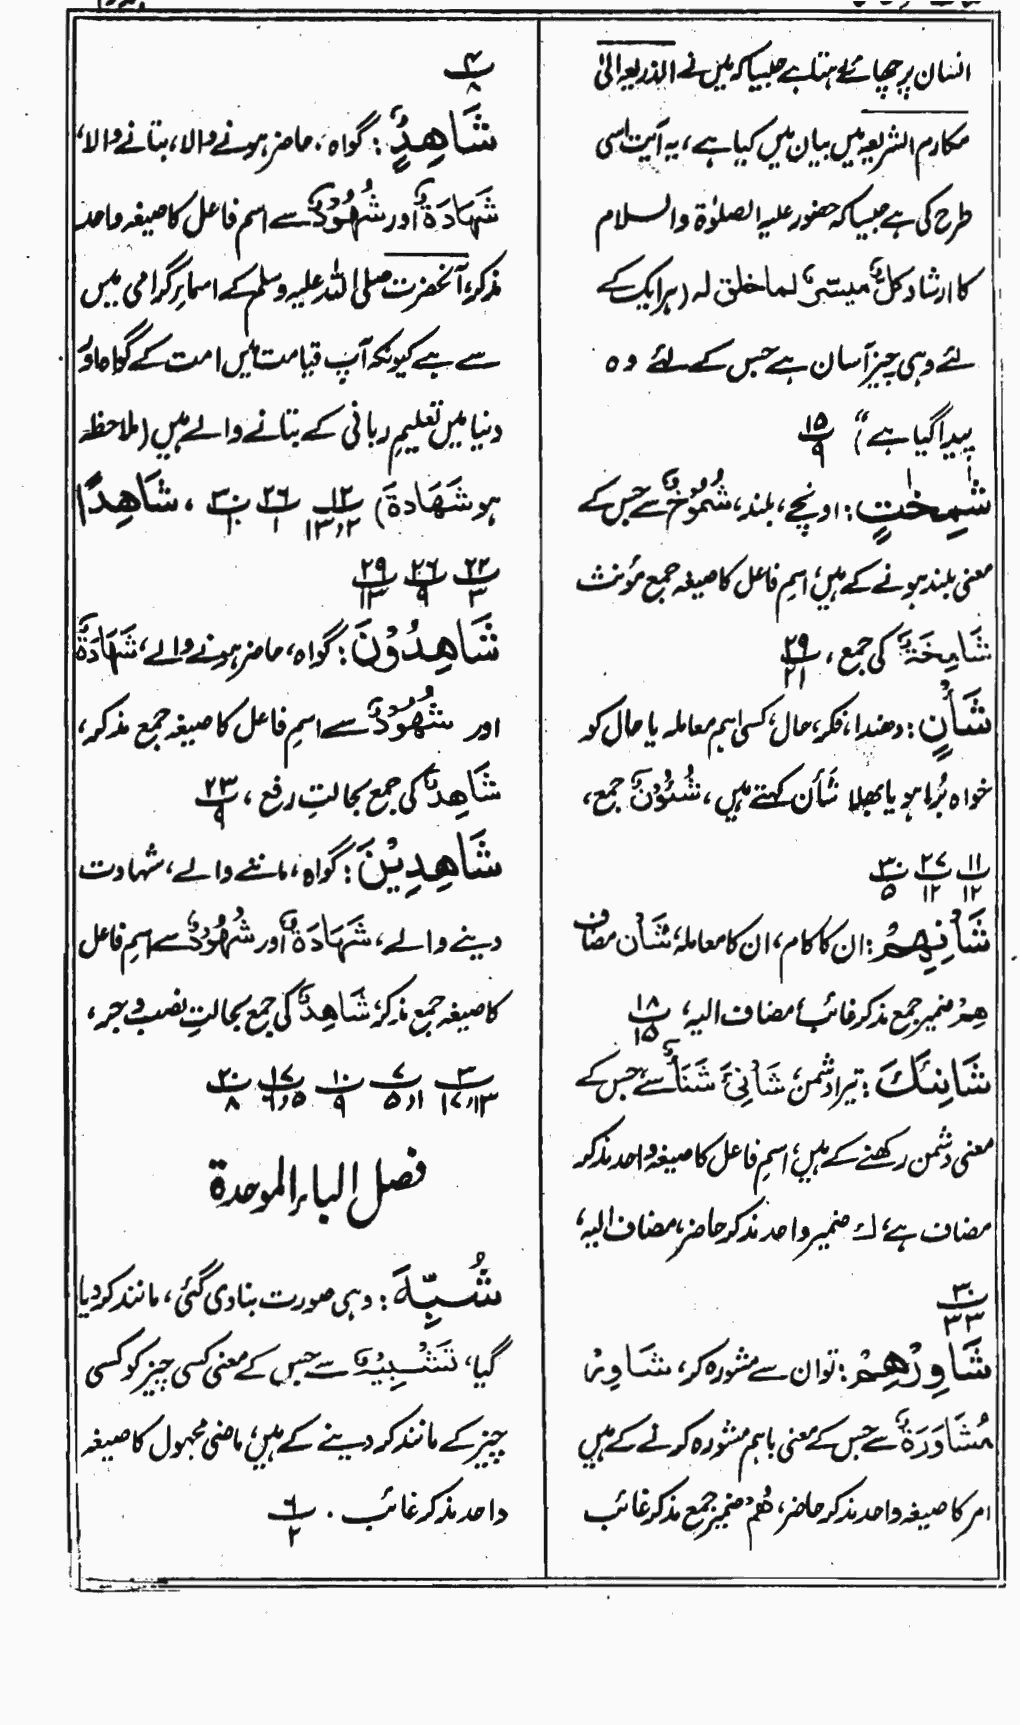 انسان پر چھائے رہتا ہے جیسا کہ میں نے الذریعہ الیٰ
مکارم الشریعہ میں بیان میں کیا ہے، یہ آیت اسی
طرح کی ہے جیسا کہ حضور علیہ الصلوٰۃ والسلام
کا ارشاد کُلٌّ میسّرٌ لما خلق لہ (ہر ایک کے
لئے وہی چیز آسان ہے جس کے لئے وہ
پیدا گیا ہے") ۱۵/۹
شٰمِخٰتٍ : اونچے، بلند، شُمُوْخٌ سے جس کے
معنی بلند ہونے کے ہیں، اسمِ فاعل کا صیغہ جمع مؤنث
شَامِخَۃٌ کی جمع، ۲۹/۲۱
شَأْنٍ : دھندا، فکر، حال، کسی اہم معاملہ یا حال کو
خواہ بُرا ہو یا بھلا شَأن کہتے ہیں، شُئُوْنٌ جمع،
۱۱/۱۲ ۲۷/۱۲ ۳۰/۵
شَأْنِهِمْ : ان کا کام، ان کا معاملہ، شَأن مضاف
هِمْ ضمیر جمع مذکر غائب مضاف الیہ، ۱۸/۱۵
شَانِئَكَ : تیرا دشمن، شَانِئٌ شَنَأٌ سے جس کے
معنی دشمن رکھنے کے ہیں، اسمِ فاعل کا صیغہ واحد مذکر
مضاف ہے، ك ضمیر واحد مذکر حاضر، مضاف الیہ،
۳۰/۳۳
شَاوِرْهُمْ : تو ان سے مشورہ کر، شَاوِرْ
مُشَاوَرَۃٌ سے جس کے معنی باہم مشورہ کرنے کے ہیں
امر کا صیغہ واحد مذکر حاضر، هُمْ ضمیر جمع مذکر غائب
۴/۸
شَاهِدٌ : گواہ، حاضر ہونے والا، بتانے والا،
شَهَادَۃٌ اور شُهُوْدٌ سے اسم فاعل کا صیغہ واحد
مذکر، آنحضرت صلی اللہ علیہ وسلم کے اسماء گرامی میں
سے ہے کیونکہ آپ قیامت میں امت کے گواہ اور
دنیا میں تعلیمِ ربانی کے بتانے والے ہیں (ملاحظہ
ہو شَهَادۃ) ۱۲/۱۳،۲ ۲۶/۱ ۳۰/۱۰، شَاهِدًا
۲۲/۳ ۲۶/۹ ۲۹/۱۳
شَاهِدُوْنَ : گواہ، حاضر ہونے والے، شَهَادَۃٌ
اور شُهُوْدٌ سے اسمِ فاعل کا صیغہ جمع مذکر،
شَاهِدٌ کی جمع بحالتِ رفع، ۲۳/۹
شَاهِدِیْنَ : گواہ، ماننے والے، شہادت
دینے والے، شَهَادَۃٌ اور شُهُوْدٌ سے اسمِ فاعل
کا صیغہ جمع مذکر، شَاهِدٌ کی جمع بحالتِ نصب و جر،
۳/۱۳،۱۷ ۷/۱،۵ ۱۰/۹ ۱۷/۵،۶ ۲۰/۸
فصل الباء الموحدۃ
شُبِّهَ : وہی صورت بنا دی گئی، مانند کر دیا
گیا، تَشْبِیْهٌ سے جس کے معنی کسی چیز کو کسی
چیز کے مانند کر دینے کے ہیں، ماضی مجہول کا صیغہ
واحد مذکر غائب . ۶/۲